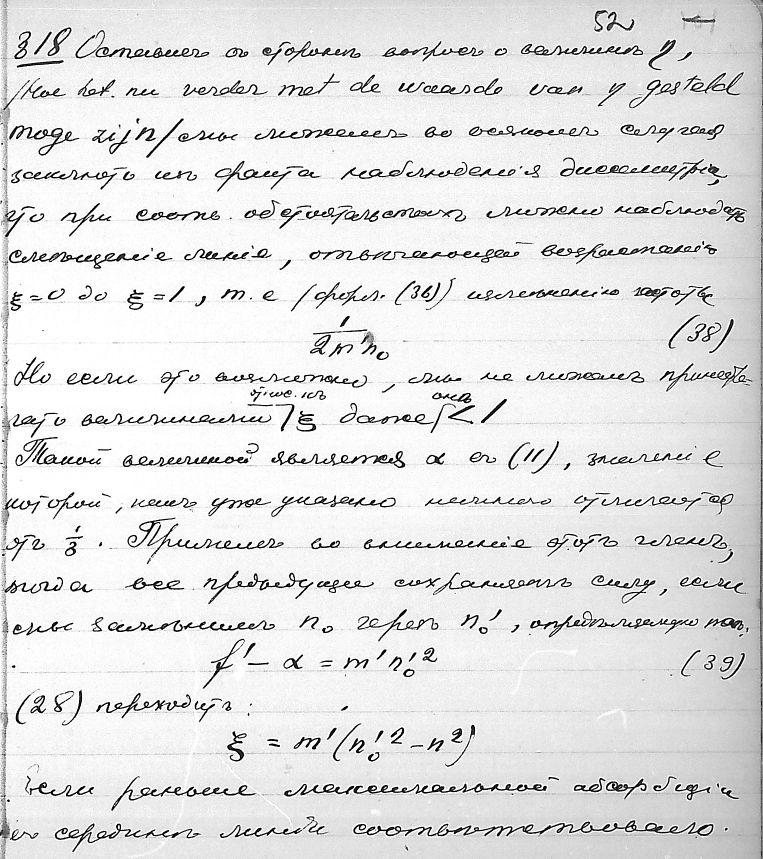 52
§18 Оставивъ въ сторонѣ вопросъ о величинѣ η,
/Hoe het nu verder met de waarde van η gesteld
moge zijn/ мы можемъ во всякомъ случаѣ
заключить изъ факта наблюденія диссиметріи,
что при соотв. обстоятельствахъ можно наблюдать
смѣщеніе линіи, отвѣчающей возрастанію
ξ=0 до ξ=1, т.е /форм. (36)/ измѣненію частоты
1/2m'n₀ (38)
Но если это возможно, мы не можемъ пренебре-
относ. къ онѣ
гать величинами ξ даже < 1
Такой величиной является α въ (11), значеніе
которой, какъ уже указано немного отличается
отъ 1/3. Примемъ во вниманіе этотъ членъ,
тогда все предыдущее сохраняетъ силу, если
мы замѣнимъ n₀ через n₀', опредѣляемую
f' − α = m'n₀'² (39)
(28) переходитъ:
ξ = m'(n₀'² − n²)
Если раньше максимальной абсорбціи
въ серединѣ линіи соотвѣтствовало.